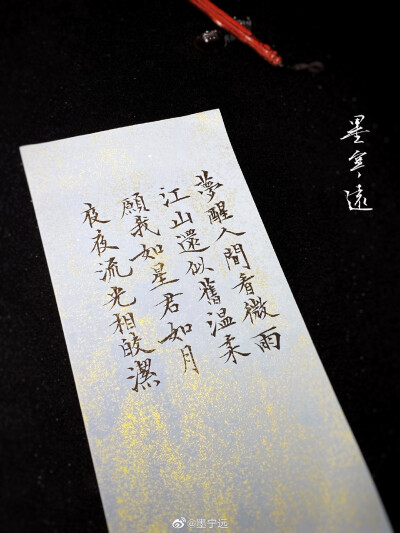 墨寧遠
夢醒人間看微雨
江山還似舊溫柔
願我如星君如月
夜夜流光相皎潔
@墨宁远